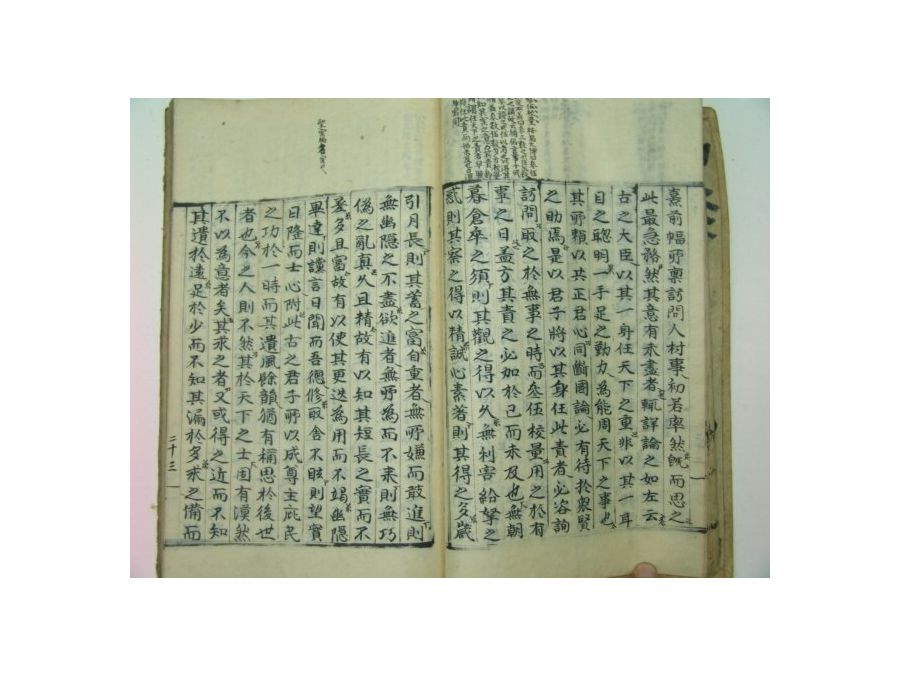 熹前幅所禀訪問人材事初若率然旣而思之
此最急務然其意有未盡者輒詳論之如左云
古之大臣以其一身任天下之重非以其一耳
目之聰明一手足之動力為能周天下之事也
其所賴以共正君心同斷國論必有待於衆賢
之助焉是以君子將以其身任此責者必咨詢
訪問取之於無事之時而叅伍校量用之於有
事之日盖方其責之必加於已而未及也無朝
暮倉卒之須則其觀之得以久無利害紛挐之
惑則其察之得以精誠心素著則其得之多歲
引月長則其蓄之富自重者無所嫌而敢進則
無幽隱之不盡欲進者無所為而不来則無巧
偽之亂真久且精故有以知其短長之實而不
差多且富故有以使其更迭為用而不竭幽隱
畢達則讜言日聞而吾德修取舍不眩則望實
日隆而士心附此古之君子所以成尊主庇民
之功於一時而其遺風餘韻猶有稱思於後世
者也今之人則不然其於天下之士固有漠然
不以為意者矣其求之者又或得之近而不知
其遺於遠足於少而不知其漏於多求之備而
二十三